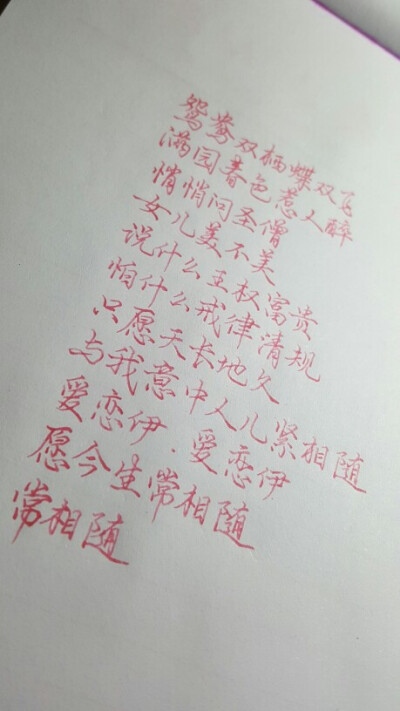 鸳鸯双栖蝶双飞
满园春色惹人醉
悄悄问圣僧
女儿美不美
说什么王权富贵
怕什么戒律清规
只愿天长地久
与我意中人儿紧相随
爱恋伊．爱恋伊
愿今生常相随
常相随